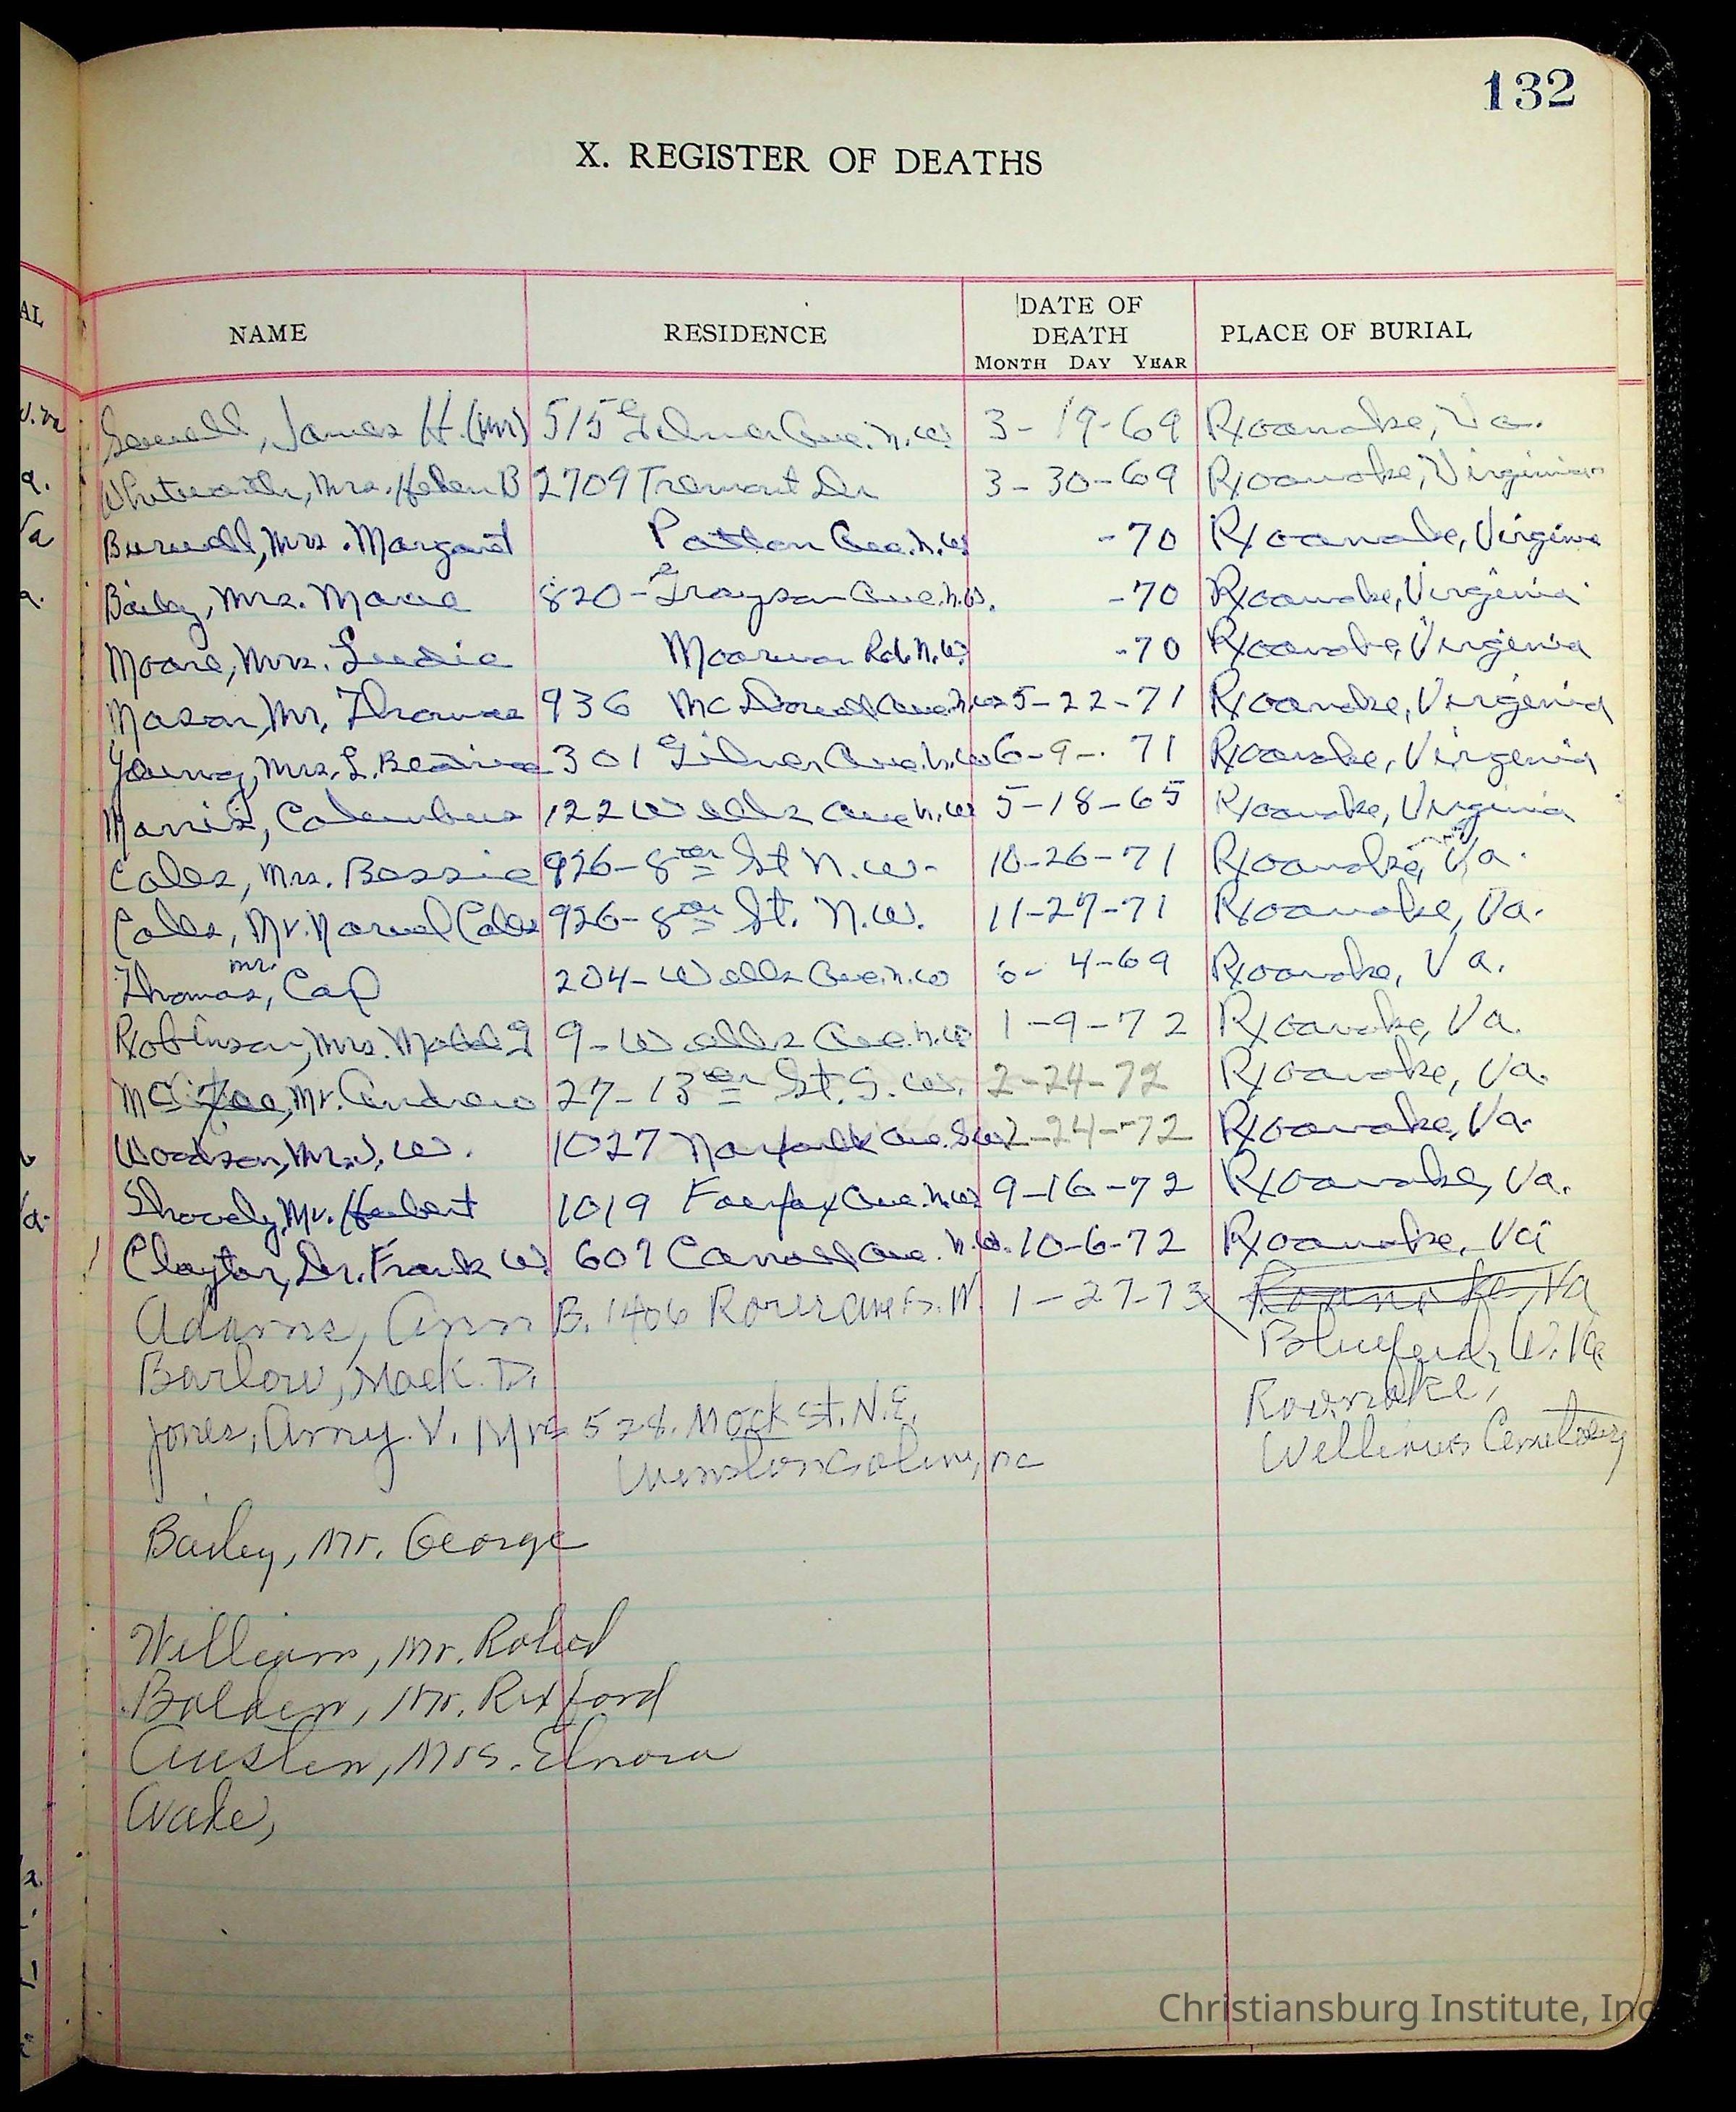 132
X. REGISTER OF DEATHS
NAME RESIDENCE DATE OF DEATH MONTH DAY YEAR PLACE OF BURIAL
James H. (Mr) 515 Gilmer Ave. N.W. 3-19-69 Roanoke, Va.
Mrs. Helen B 2709 Tremont Dr 3-30-69 Roanoke, Virginia
Burwell, Mrs. Margaret Patton Ave. N.W. -70 Roanoke, Virginia
Baily, Mrs. Marie 820-Grayson Ave. N.W. -70 Roanoke, Virginia
Moore, Mrs. Moorman Rd. N.W. -70 Roanoke, Virginia
Mason, Mr. Thomas 936 McDowell Ave. N.W. 5-22-71 Roanoke, Virginia
Young, Mrs. L. Beatrice 301 Gilmer Ave. N.W. 6-9-71 Roanoke, Virginia
Morris, Columbus 122 Wells Ave N.W 5-18-65 Roanoke, Virginia
Coles, Mrs. Bessie 926-8th St N.W. 10-26-71 Roanoke, Va.
Coles, Mr. Norvel Coles 926-8th St. N.W. 11-27-71 Roanoke, Va.
Thomas, Mr. Cap 204-Wells Ave. N.W 6-4-69 Roanoke, Va.
Robinson, Mrs. Mabel G 9-Wells Ave. N.W. 1-9-72 Roanoke, Va.
Mr. Andrew 27-13th St. S.W. 2-24-72 Roanoke, Va.
Woodson, Mr. J. W. 1027 Norfolk Ave. S.W. 2-24-72 Roanoke, Va.
Mr. Hubert 1019 Fairfax Ave. N.W. 9-16-72 Roanoke, Va.
Clayton, Dr. Frank W. 607 Carroll Ave. N.W. 10-6-72 Roanoke, Va
Adams, Ann B. 1406 Rorer Ave S. W. 1-27-73 Roanoke, Va
Bluefield, W. Va
Barlow, Mack. D. Roanoke,
Jones, Amy. V. Mrs 528. Mock St. N.E. Williams Cemetery
Winston Salem, NC
Bailey, Mr. George
William, Mr. Robert
Bolden, Mr. Rexford
Austin, Mrs. Elnora
Wade,
Christiansburg Institute, Inc